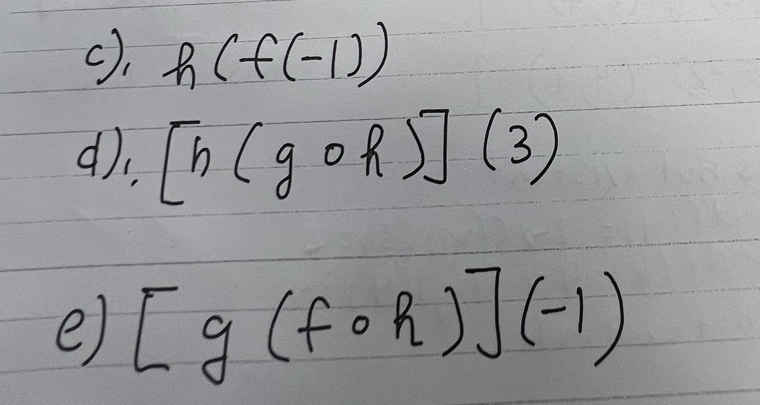 c), h(f(-1))
d), [h(g o h)] (3)
e) [g (f o h)] (-1)